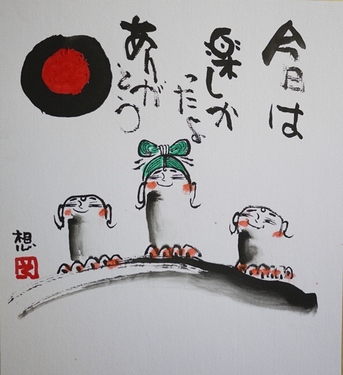 今日は
楽しか
ったよ
ありが
とう
想